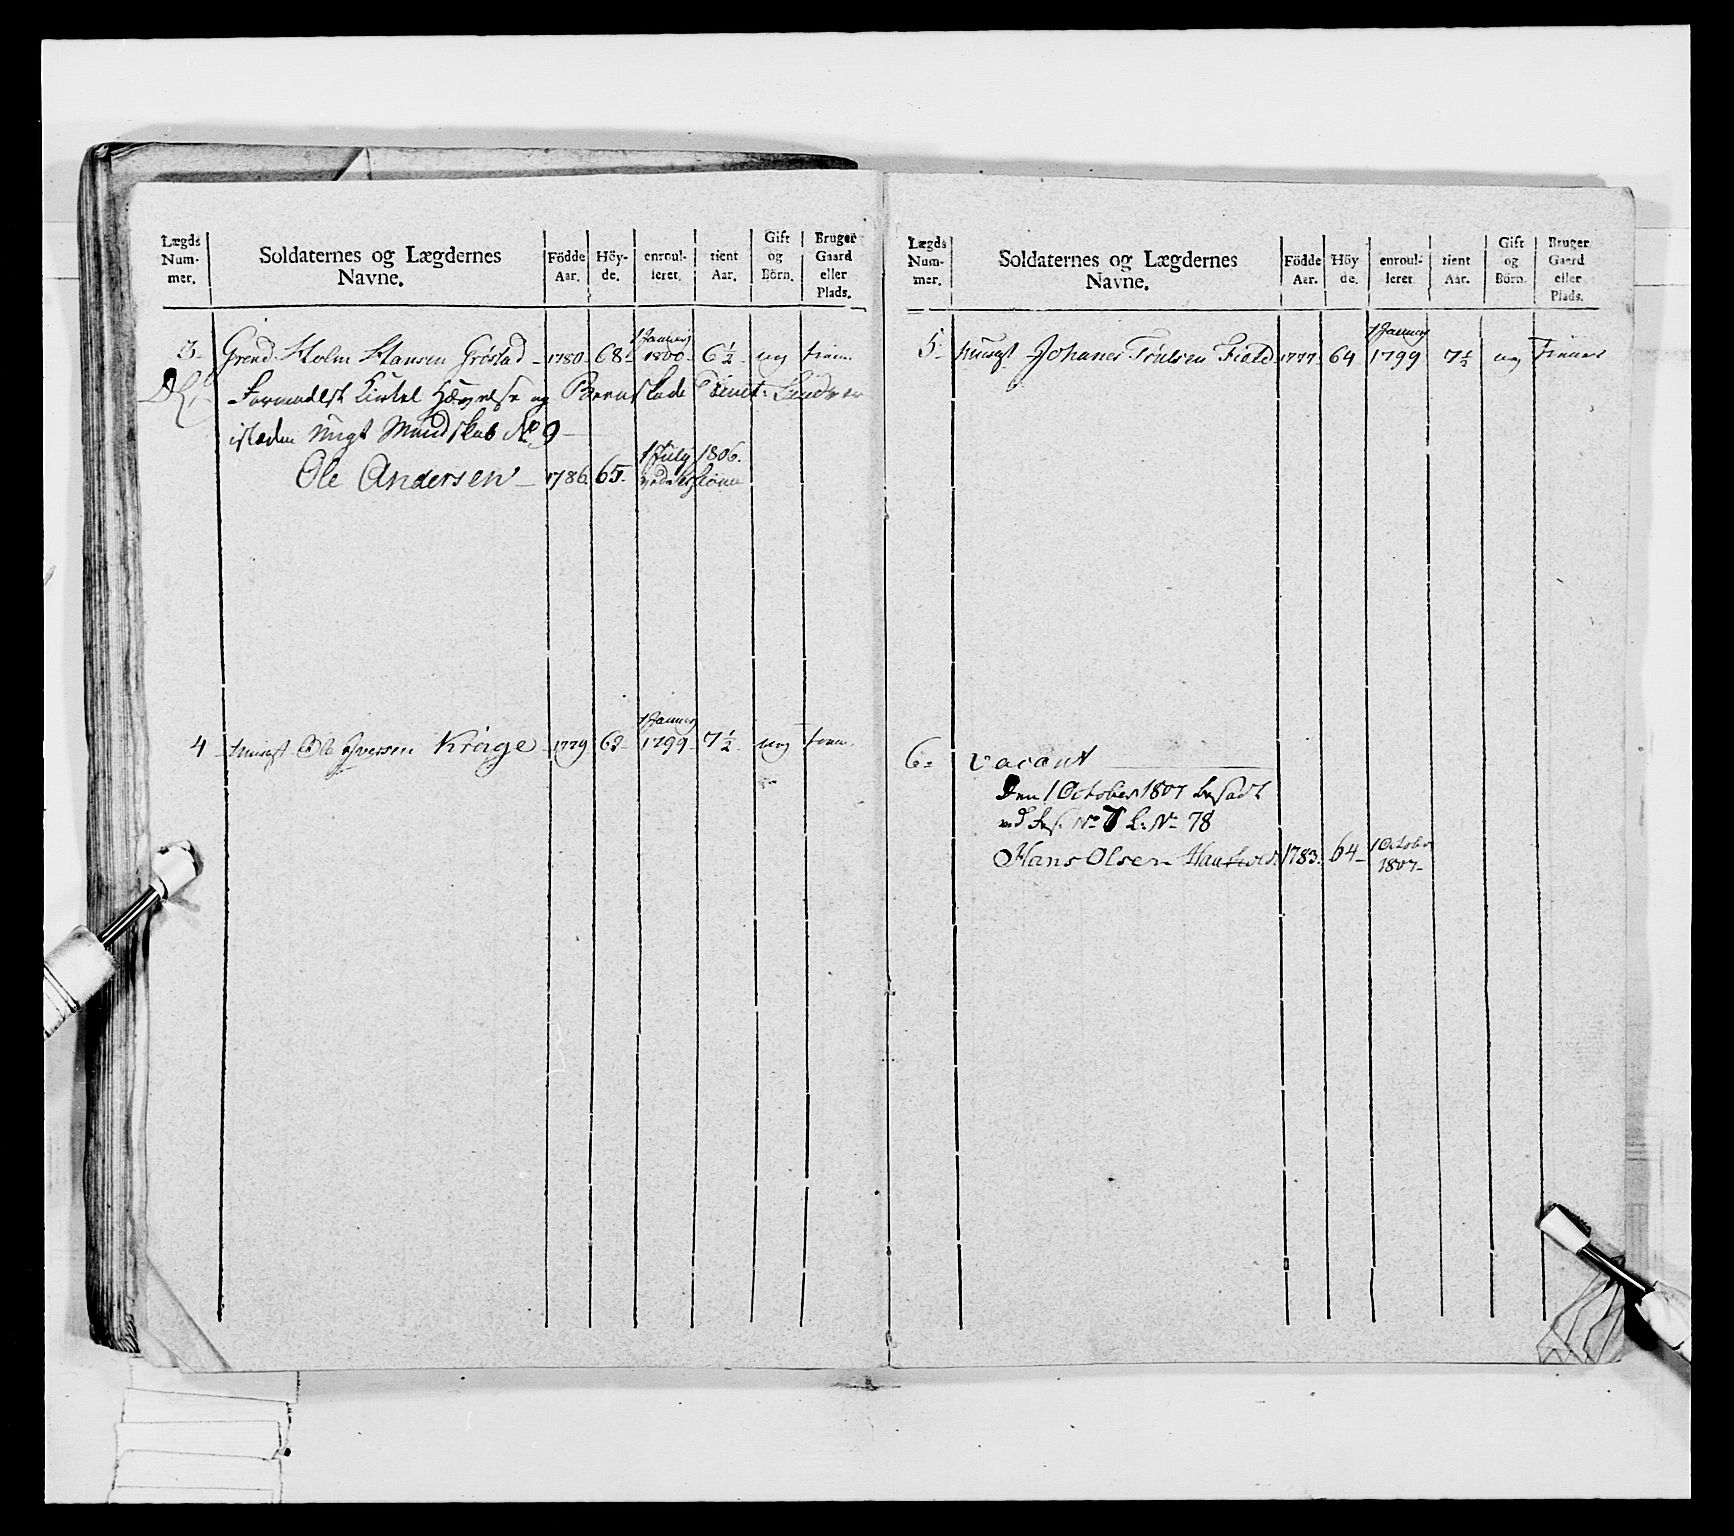 Lægds Num- mer. Soldaternes og Lægdernes Navne. Födde Aar. Höy- de. enroul- leret. tient Aar. Gift og Börn. Bruger Gaard eller Plads.
3. Grend. Holm Hansen Gröstad 1780. 68. 1 Januarj 1800. 6½ ug tien.
og Beenskade
istæden Mandskab No 9
Ole Andersen 1786. 65. 1 July 1806.
ved Session
4 Musqt Ole Iversen Kröge 1779 63 1 Januarj 1799 7½ ug tien.
Lægds Num- mer. Soldaternes og Lægdernes Navne. Födde Aar. Höy de. enroul- leret. tient Aar. Gift og Börn. Bruger Gaard eller Plads.
5. Musqt Johanes Truelsen Field 1777. 64 1 Januarj 1799 7½ ug tiener
6. vacant
Den 1 October 1807 besadt
ved No 7 L: No 78
Hans Olsen 1783. 64 1 October 1807